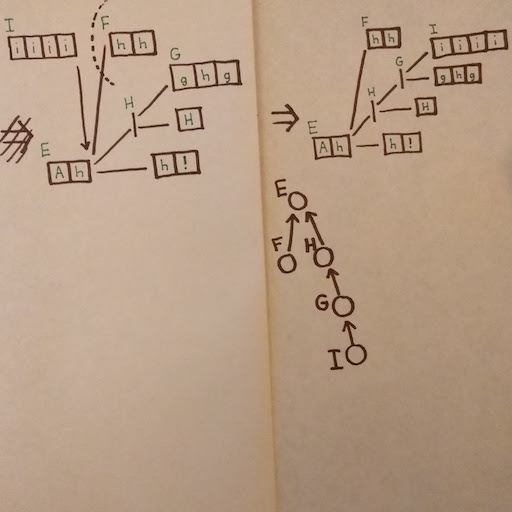 I
i i i i
F
h h
G
g h g
H
H
E
A h
h !
F
h h
I
i i i i
G
g h g
H
H
E
A h
h !
E
F H
G
I